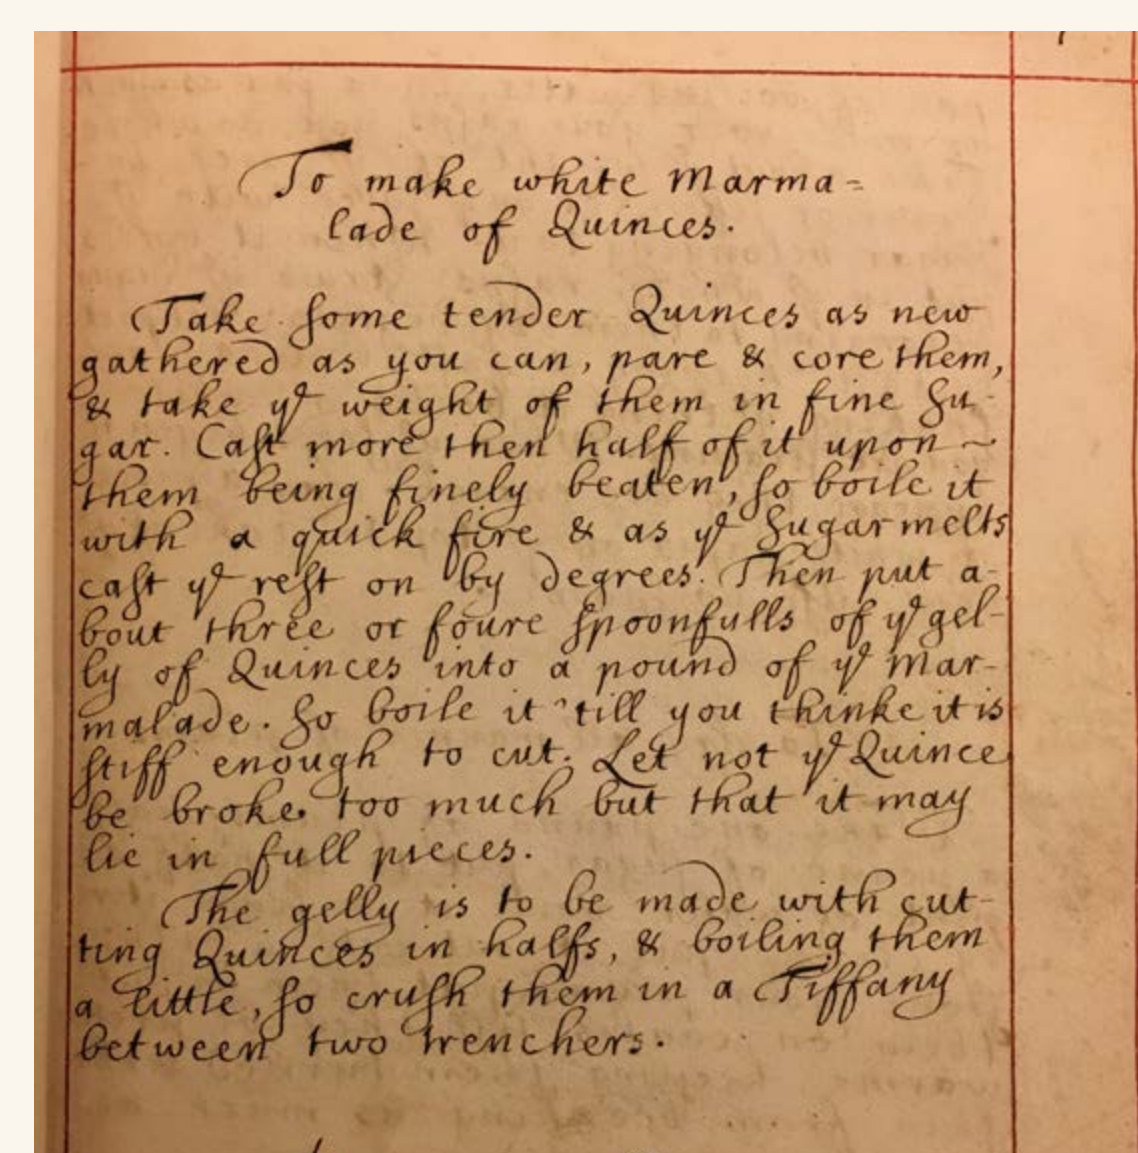 To make white Marma=
lade of Quinces.
Take some tender Quinces as new
gathered as you can, pare & core them,
& take yᵉ weight of them in fine Su-
gar. Cast more then half of it upon ~
them being finely beaten, so boile it
with a quick fire & as yᵉ Sugar melts
cast yᵉ rest on by degrees. Then put a-
bout three or foure spoonfulls of yᵉ gel-
ly of Quinces into a pound of yᵉ Mar-
malade. So boile it 'till you thinke it is
stiff enough to cut. Let not yᵉ Quince
be broke too much but that it may
lie in full pieces.
The gelly is to be made with cut-
ting Quinces in halfs, & boiling them
a little, so crush them in a Tiffany
between two trenchers.